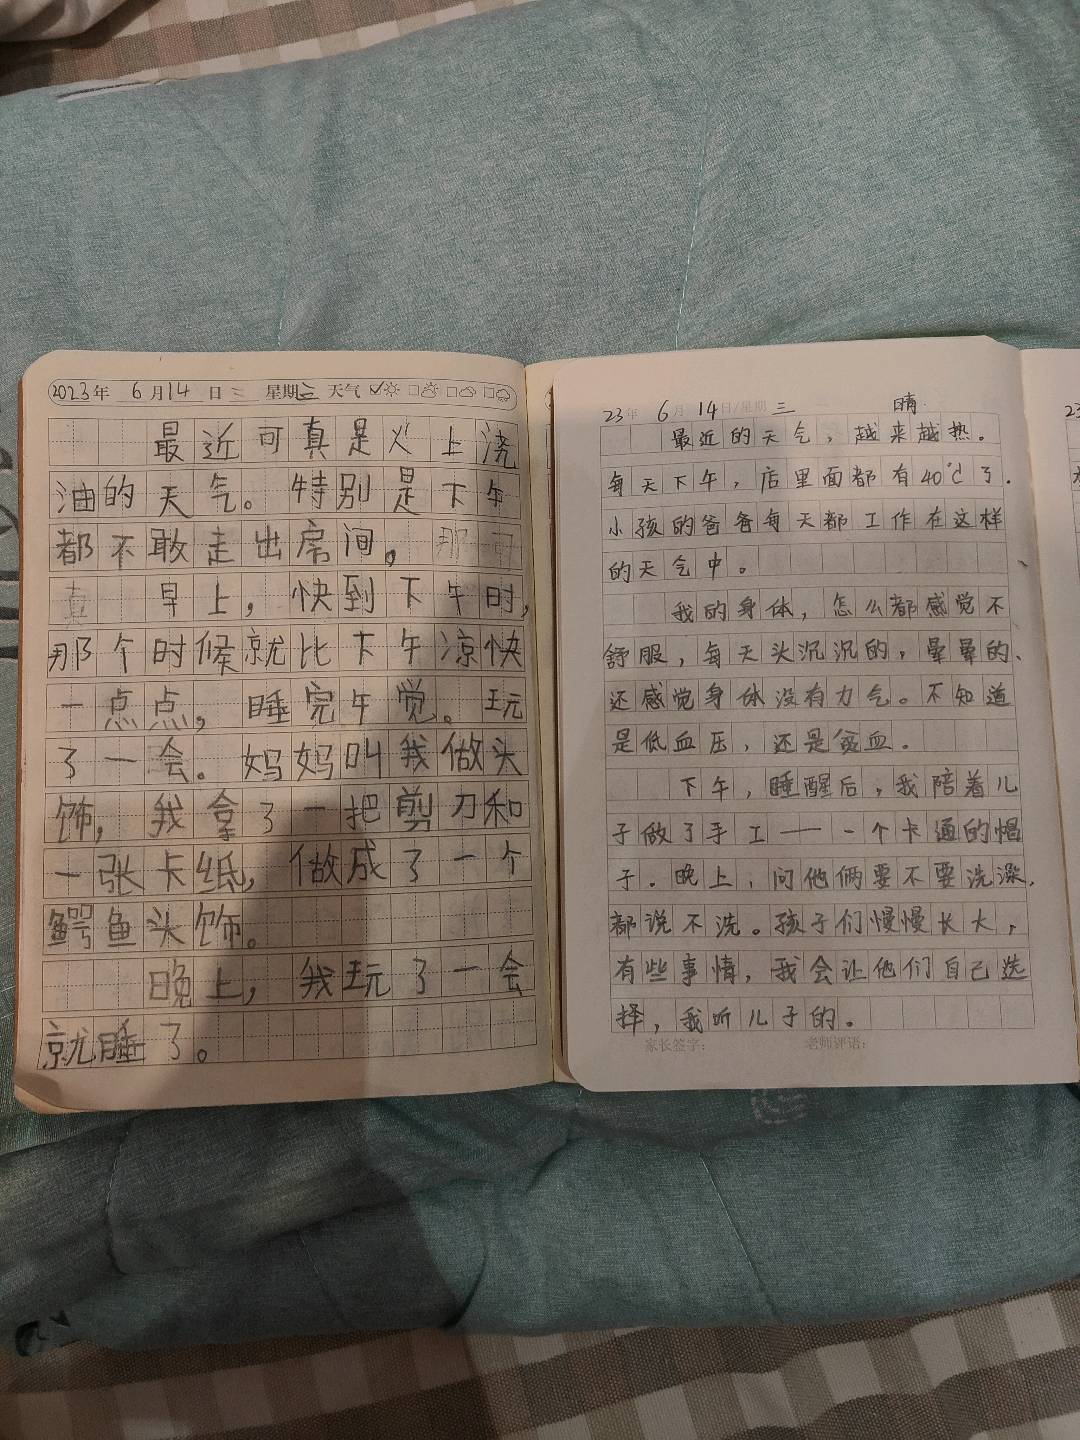 2023年 6月14日 星期三 天气
最近可真是火上浇
油的天气。特别是下午
都不敢走出房间。那可
真 早上，快到下午时，
那个时候就比下午凉快
一点点，睡完午觉。玩
了一会。妈妈叫我做头
饰，我拿了一把剪刀和
一张卡纸，做成了一个
鳄鱼头饰。
晚上，我玩了一会
就睡了。
23年 6月14日/星期三 晴
最近的天气，越来越热。
每天下午，店里面都有40℃了.
小孩的爸爸每天都工作在这样
的天气中。
我的身体，怎么都感觉不
舒服，每天头沉沉的，晕晕的、
还感觉身体没有力气。不知道
是低血压，还是贫血。
下午，睡醒后，我陪着儿
子做了手工——一个卡通的帽
子.晚上，问他俩要不要洗澡，
都说不洗。孩子们慢慢长大，
有些事情，我会让他们自己选
择，我听儿子的。
家长签字： 老师评语：